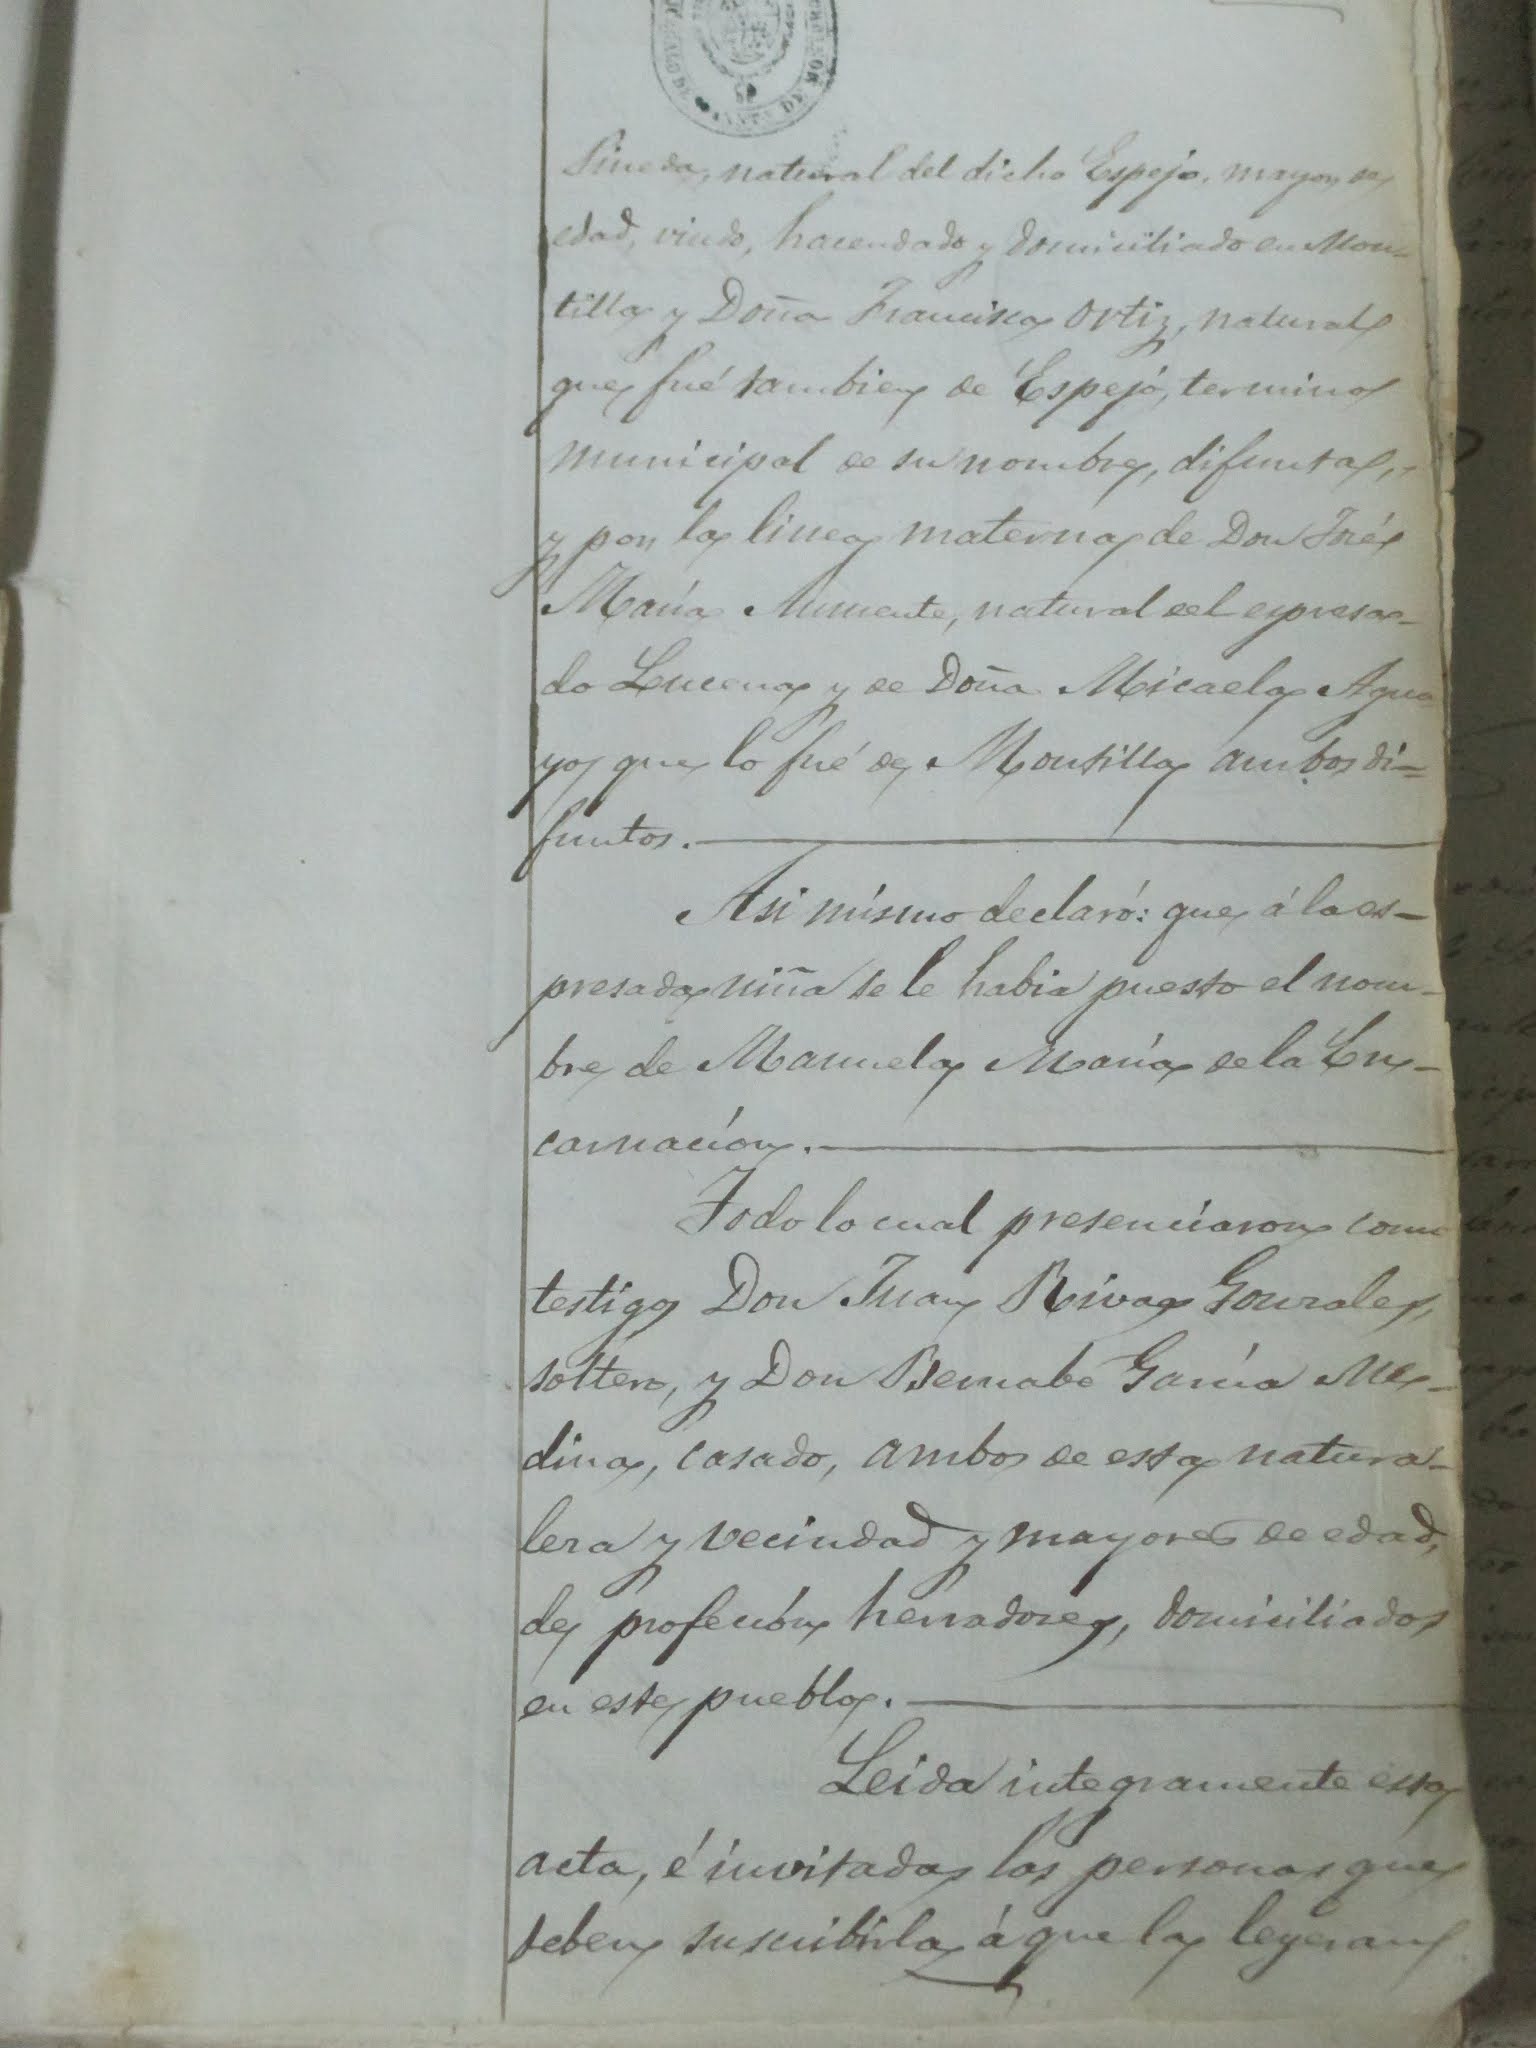 Pineda, natural del dicho Espejo, mayor de
edad, viudo, hacendado y domiciliado en Mon-
tilla y Doña Francisca Ortiz, natural
que fué tambien de Espejo, termino
municipal de su nombre, difunta,
y por la linea materna de Don José
María Aumente, natural del espresa-
do Lucena y de Doña Micaela Agua
yo que lo fué de Montilla ambos di=
funtos.
Asi mismo declaró: que á la es-
presada niña se le habia puesto el nom-
bre de Manuela María de la En-
carnación.
Todo lo cual presenciaron como
testigos Don Juan Rivas Gonzales,
soltero, y Don Bernabe García Me-
dina, casado, ambos de esta natura-
leza y vecindad y mayores de edad,
de profeción herradores, domiciliados
en este pueblo.
Leida integramente esta
acta, é invitadas las personas que
deben suscribirla á que la leyeran